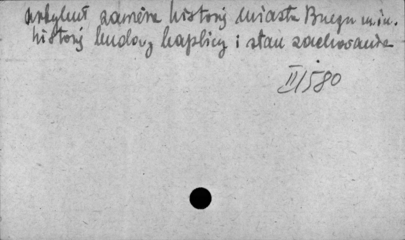 artykuł zawiera historię miasta Brzegu m.in.
historię budowy kaplicy i stan zachowania
II/580